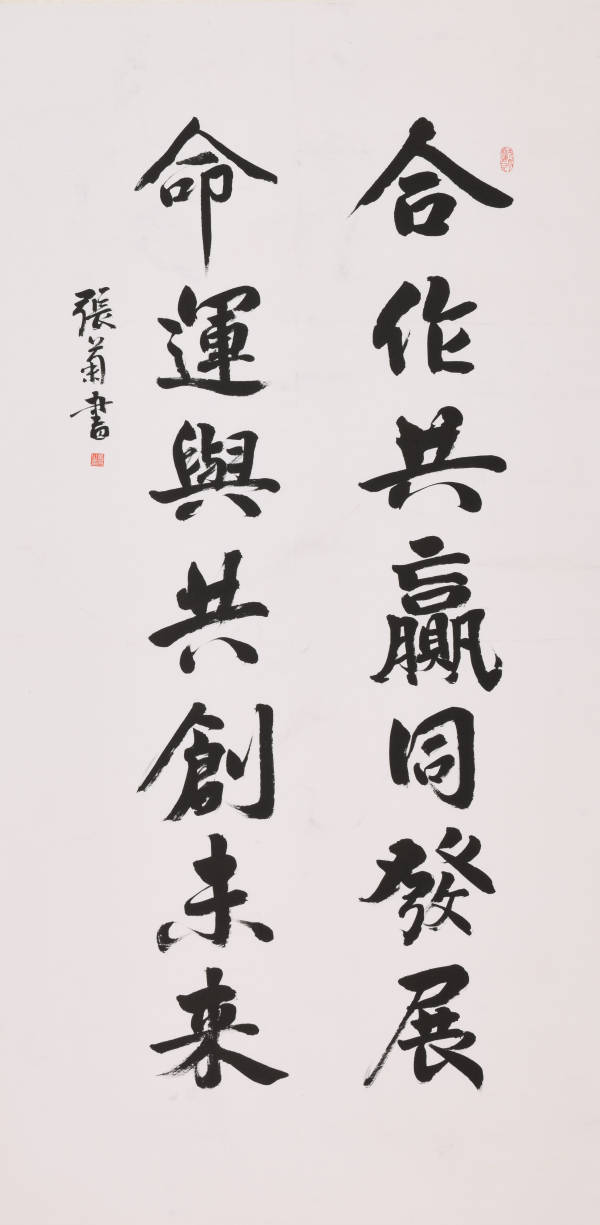 合作共贏同發展
命運與共創未来
張菊書